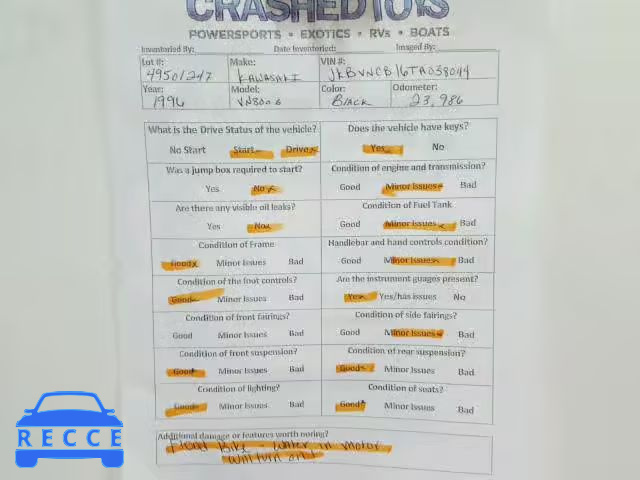 CRASHEDTOYS
POWERSPORTS • EXOTICS • RVs • BOATS
Inventoried By: Date Inventoried: Imaged By:
Lot #: Make: VIN #:
49501247 KAWASAKI JKBVNCB16TA038044
Year: Model: Color: Odometer:
1996 VN800 Black 23,986
What is the Drive Status of the vehicle? Does the vehicle have keys?
No Start Start Drive Yes No
Was a jump box required to start? Condition of engine and transmission?
Yes No Good Minor Issues Bad
Are there any visible oil leaks? Condition of Fuel Tank
Yes No Good Minor Issues Bad
Condition of Frame Handlebar and hand controls condition?
Good Minor Issues Bad Good Minor Issues Bad
Condition of the foot controls? Are the instrument guages present?
Good Minor Issues Bad Yes Yes/has issues No
Condition of front fairings? Condition of side fairings?
Good Minor Issues Bad Good Minor Issues Bad
Condition of front suspension? Condition of rear suspension?
Good Minor Issues Bad Good Minor Issues Bad
Condition of lighting? Condition of seats?
Good Minor Issues Bad Good Minor Issues Bad
Additional damage or features worth noting?
Flood Bike - Water in motor
will turn on!
RECCE